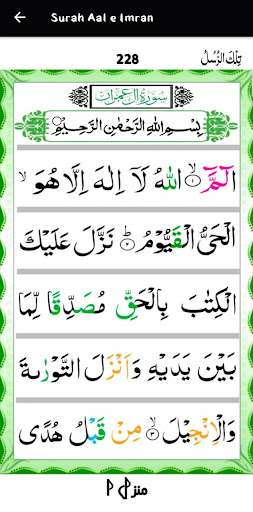 Surah Aal e Imran
228 تِلْكَ الرُّسُلُ
سُوْرَةُ اٰلِ عِمْرَان
بِسْمِ اللّٰهِ الرَّحْمٰنِ الرَّحِيْمِ
الٓمّٓ ۙ‏﴿۱﴾ اللّٰهُ لَاۤ اِلٰهَ اِلَّا هُوَ ۙ
الْحَىُّ الْقَيُّوْمُ ؕ‏﴿۲﴾ نَزَّلَ عَلَيْكَ
الْكِتٰبَ بِالْحَقِّ مُصَدِّقًا لِّمَا
بَيْنَ يَدَيْهِ وَاَنْزَلَ التَّوْرٰٮةَ
وَالْاِنْجِيْلَ ۙ‏﴿۳﴾ مِنْ قَبْلُ هُدًى
منزل ۱